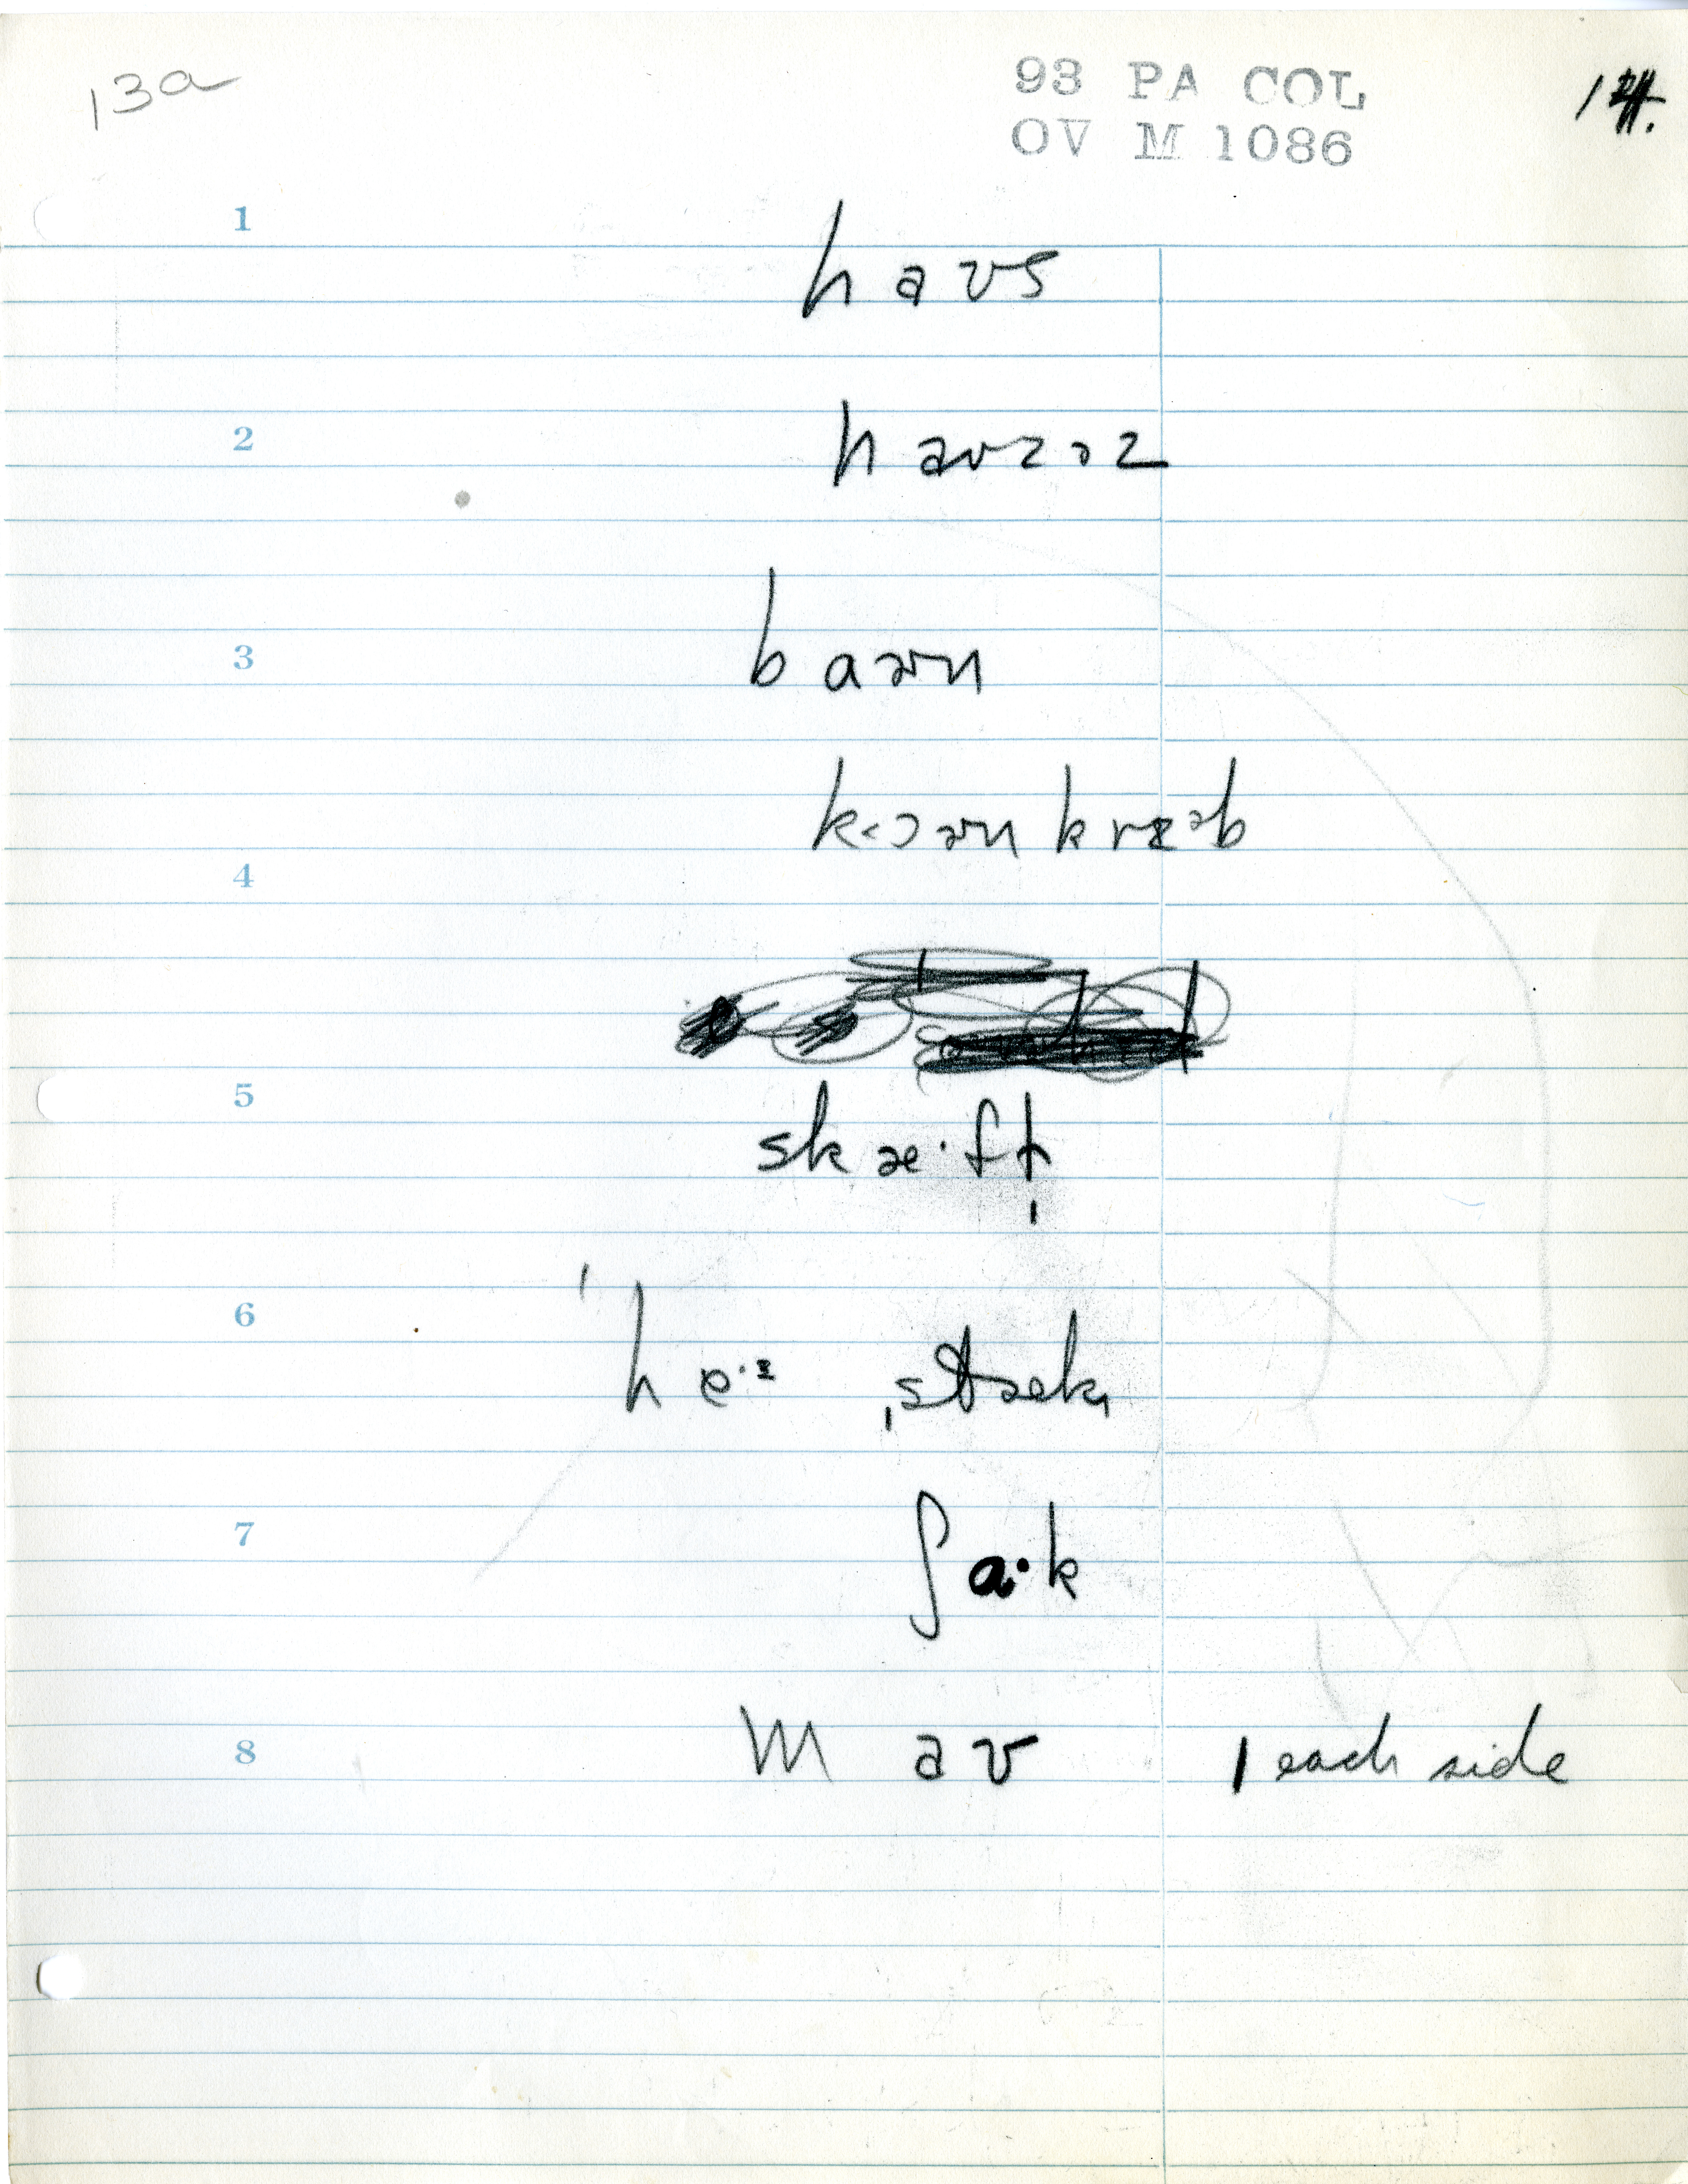 13a
93 PA COL
OV M 1086
1
haʊs
2
haʊzəz
3
baɚn
k<ɔɚn kræᵊb
4
5
skæˑft
6
'heˑɪ ˌstæk
7
ʃaˑk
8
maʊ 1 each side